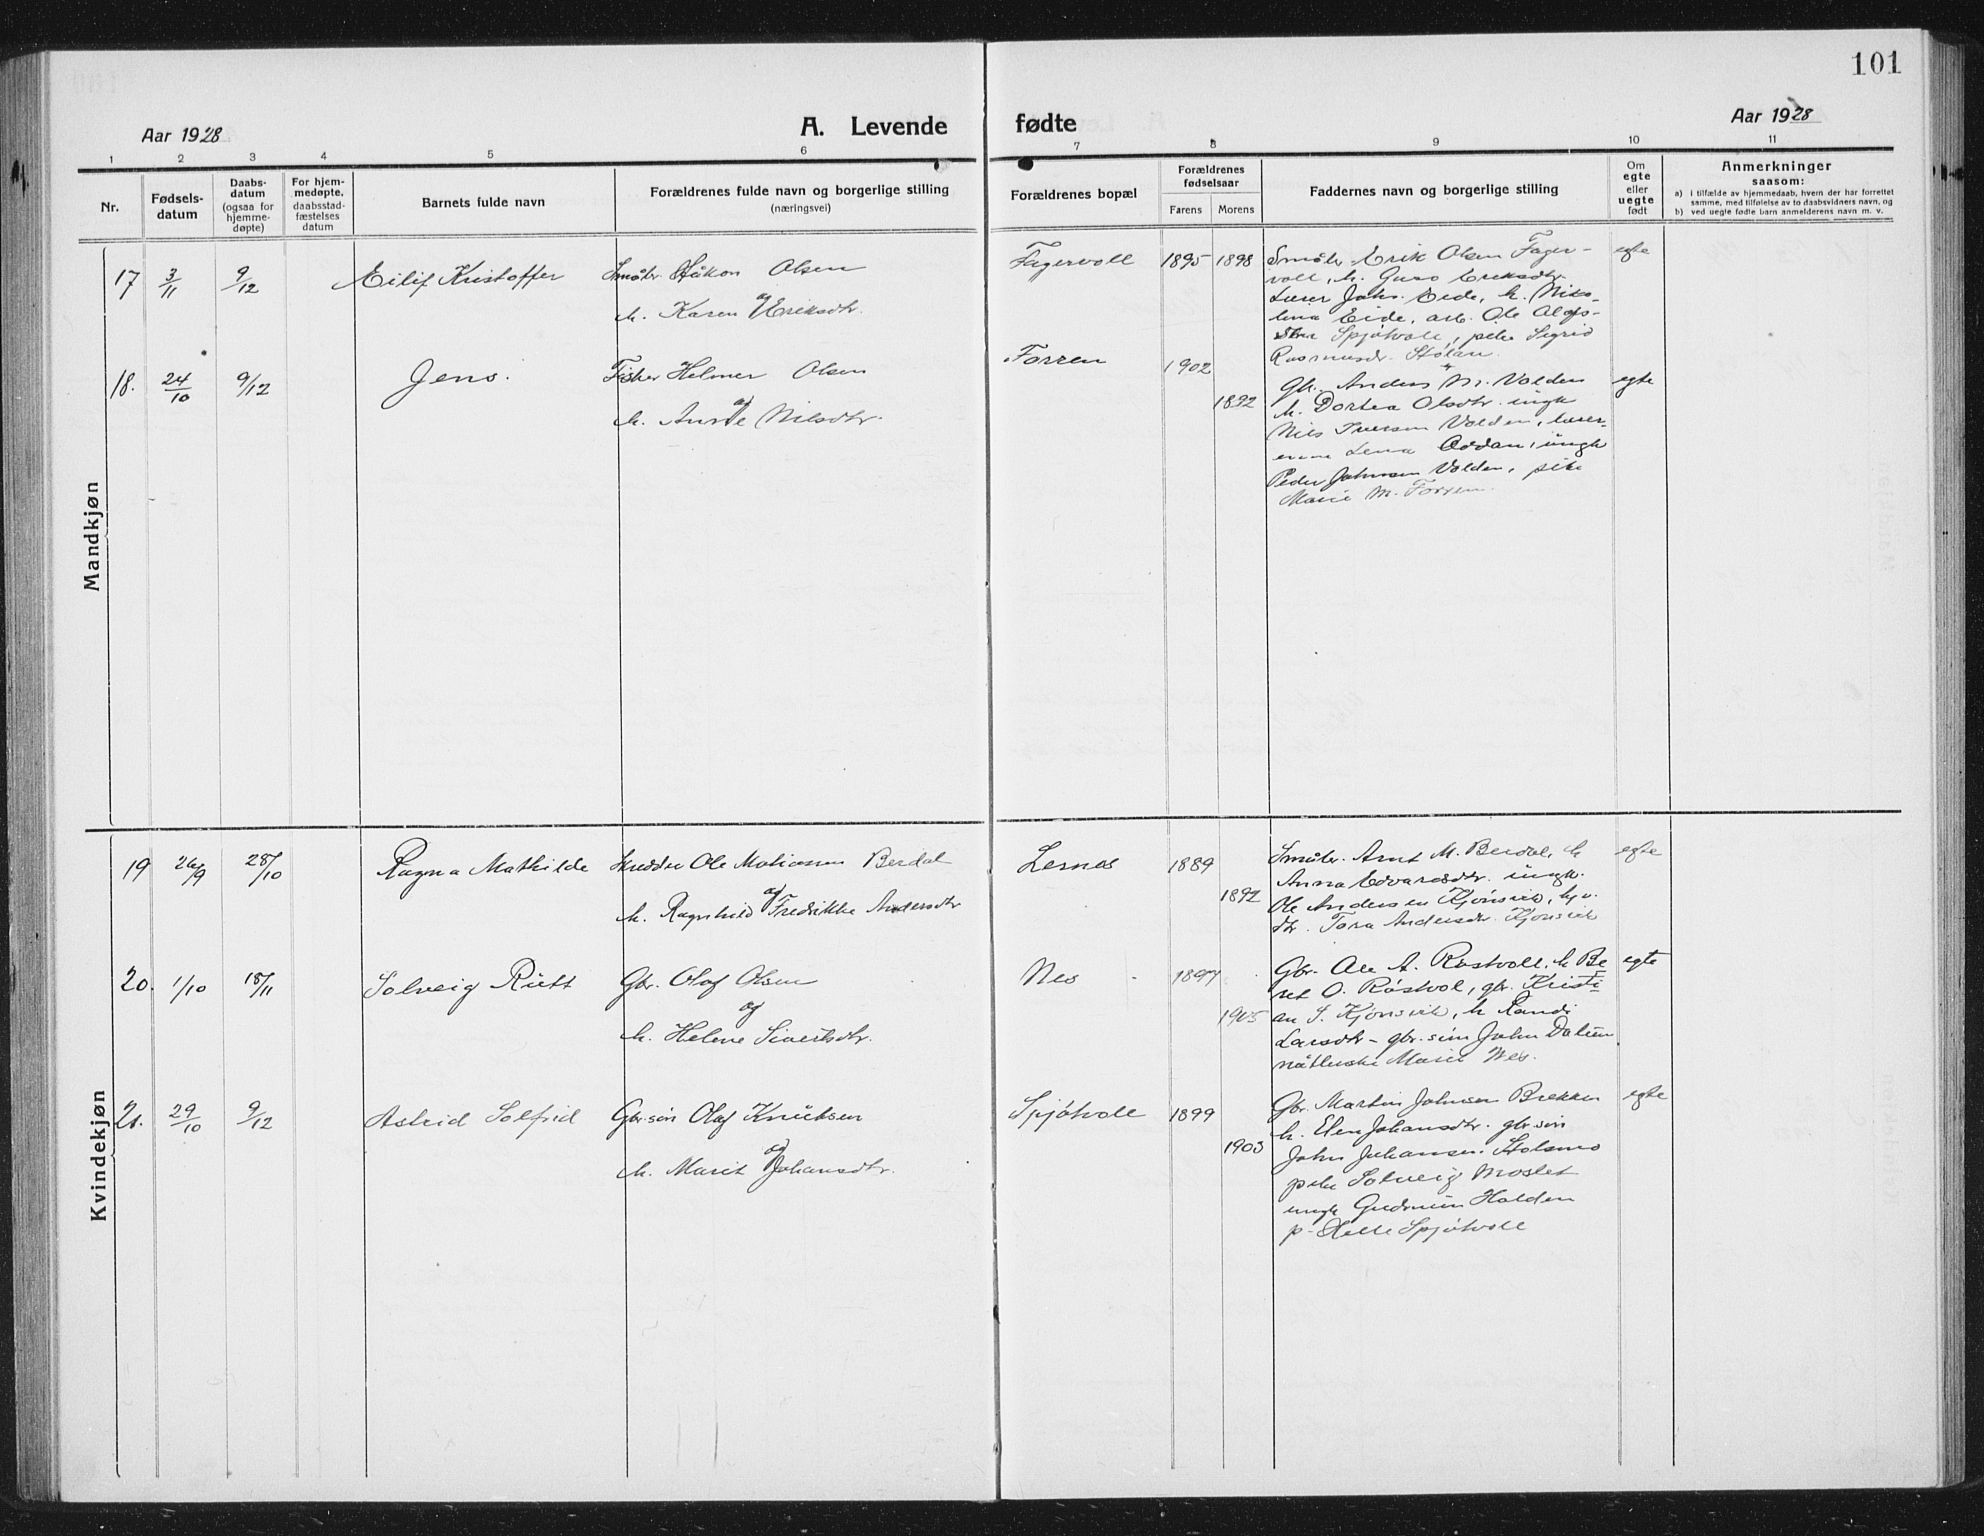 101
Aar 1928
A. Levende fødte
Aar 1928
1 2 3 4 5 6 7 8 9 10 11
Nr.
Fødsels-
datum
Daabs-
datum
(ogsaa for
hjemme-
døpte)
For hjem-
medøpte,
daabsstad-
fæstelses
datum
Barnets fulde navn
Forældrenes fulde navn og borgerlige stilling
(næringsvei)
Forældrenes bopæl
Forældrenes
fødselsaar
Farens Morens
Faddernes navn og borgerlige stilling
Om
egte
eller
uegte
født
Anmerkninger
saasom:
a) i tilfælde av hjemmedaab, hvem der har forrettet
samme, med tilføielse av to daabsvidners navn, og
b) ved uegte fødte barn anmelderens navn m. v.
Mandkjøn
17 3/11 9/12 Eilif Kristoffer
Småbr. Håkon Olsen
og
h. Karen Eriksdtr.
Fagervoll 1895 1898
Småbr. Erik Olsen Fager-
voll, h. Guro Eriksdtr.
Lærer Johs. Eide, h. Niko-
lina Eide, arb. Ole Olefs-
Spjøtvoll, pike Sigrid
Rasmusdr. Stølan.
egte
18. 24/10 9/12 Jens.
Fisker Helmer Olsen
og
h. Anne Nilsdtr.
Forren 1902
1892
Gbr. Anders M. Volden
h. Dortea Olsdtr. ungk
Nils Iversen Volden, lærer-
inne Lena Oddan, ungk
Peder Johnsen Volden, pike
Marie M. Forren.
egte
Kvindekjøn
19 26/9 28/10 Ragna Mathilde
Skredder Ole Matiasen Berdal
og
h. Ragnhild Fredrikke Andersdtr
Lernes 1889
1892
Småbr. Arnt M. Berdal, h
Anna Edvardsdtr. ungk.
Ole Andersen Kjønsvik, hj v.
dtr. Tora Andersdtr. Kjønsvik
egte
20. 1/10 18/11 Solveig Rutt
Gbr. Olaf Olsen
og
h. Helene Sivertsdtr.
Nes 1897
1905
Gbr. Ole A. Røstvoll, h Be
ret O. Røstvol, gbr. Kristi
an S. Kjønsvik, h Randi
Larsdtr - gbr.sønn John Dalum
Marie Nes.
egte
21. 29/10 9/12 Astrid Solfrid
Gbr.søn Olaf Knutsen
og
h. Marit Johansdtr.
Spjøtvoll 1899
1903
Gbr. Martin Johnsen Brekken
h. Elen Johansdtr. gbr.søn
John Johansen Stolsmo
pike Solveig Moslet
ungk Gudmun Holden
p- Helle Spjøtvoll
egte